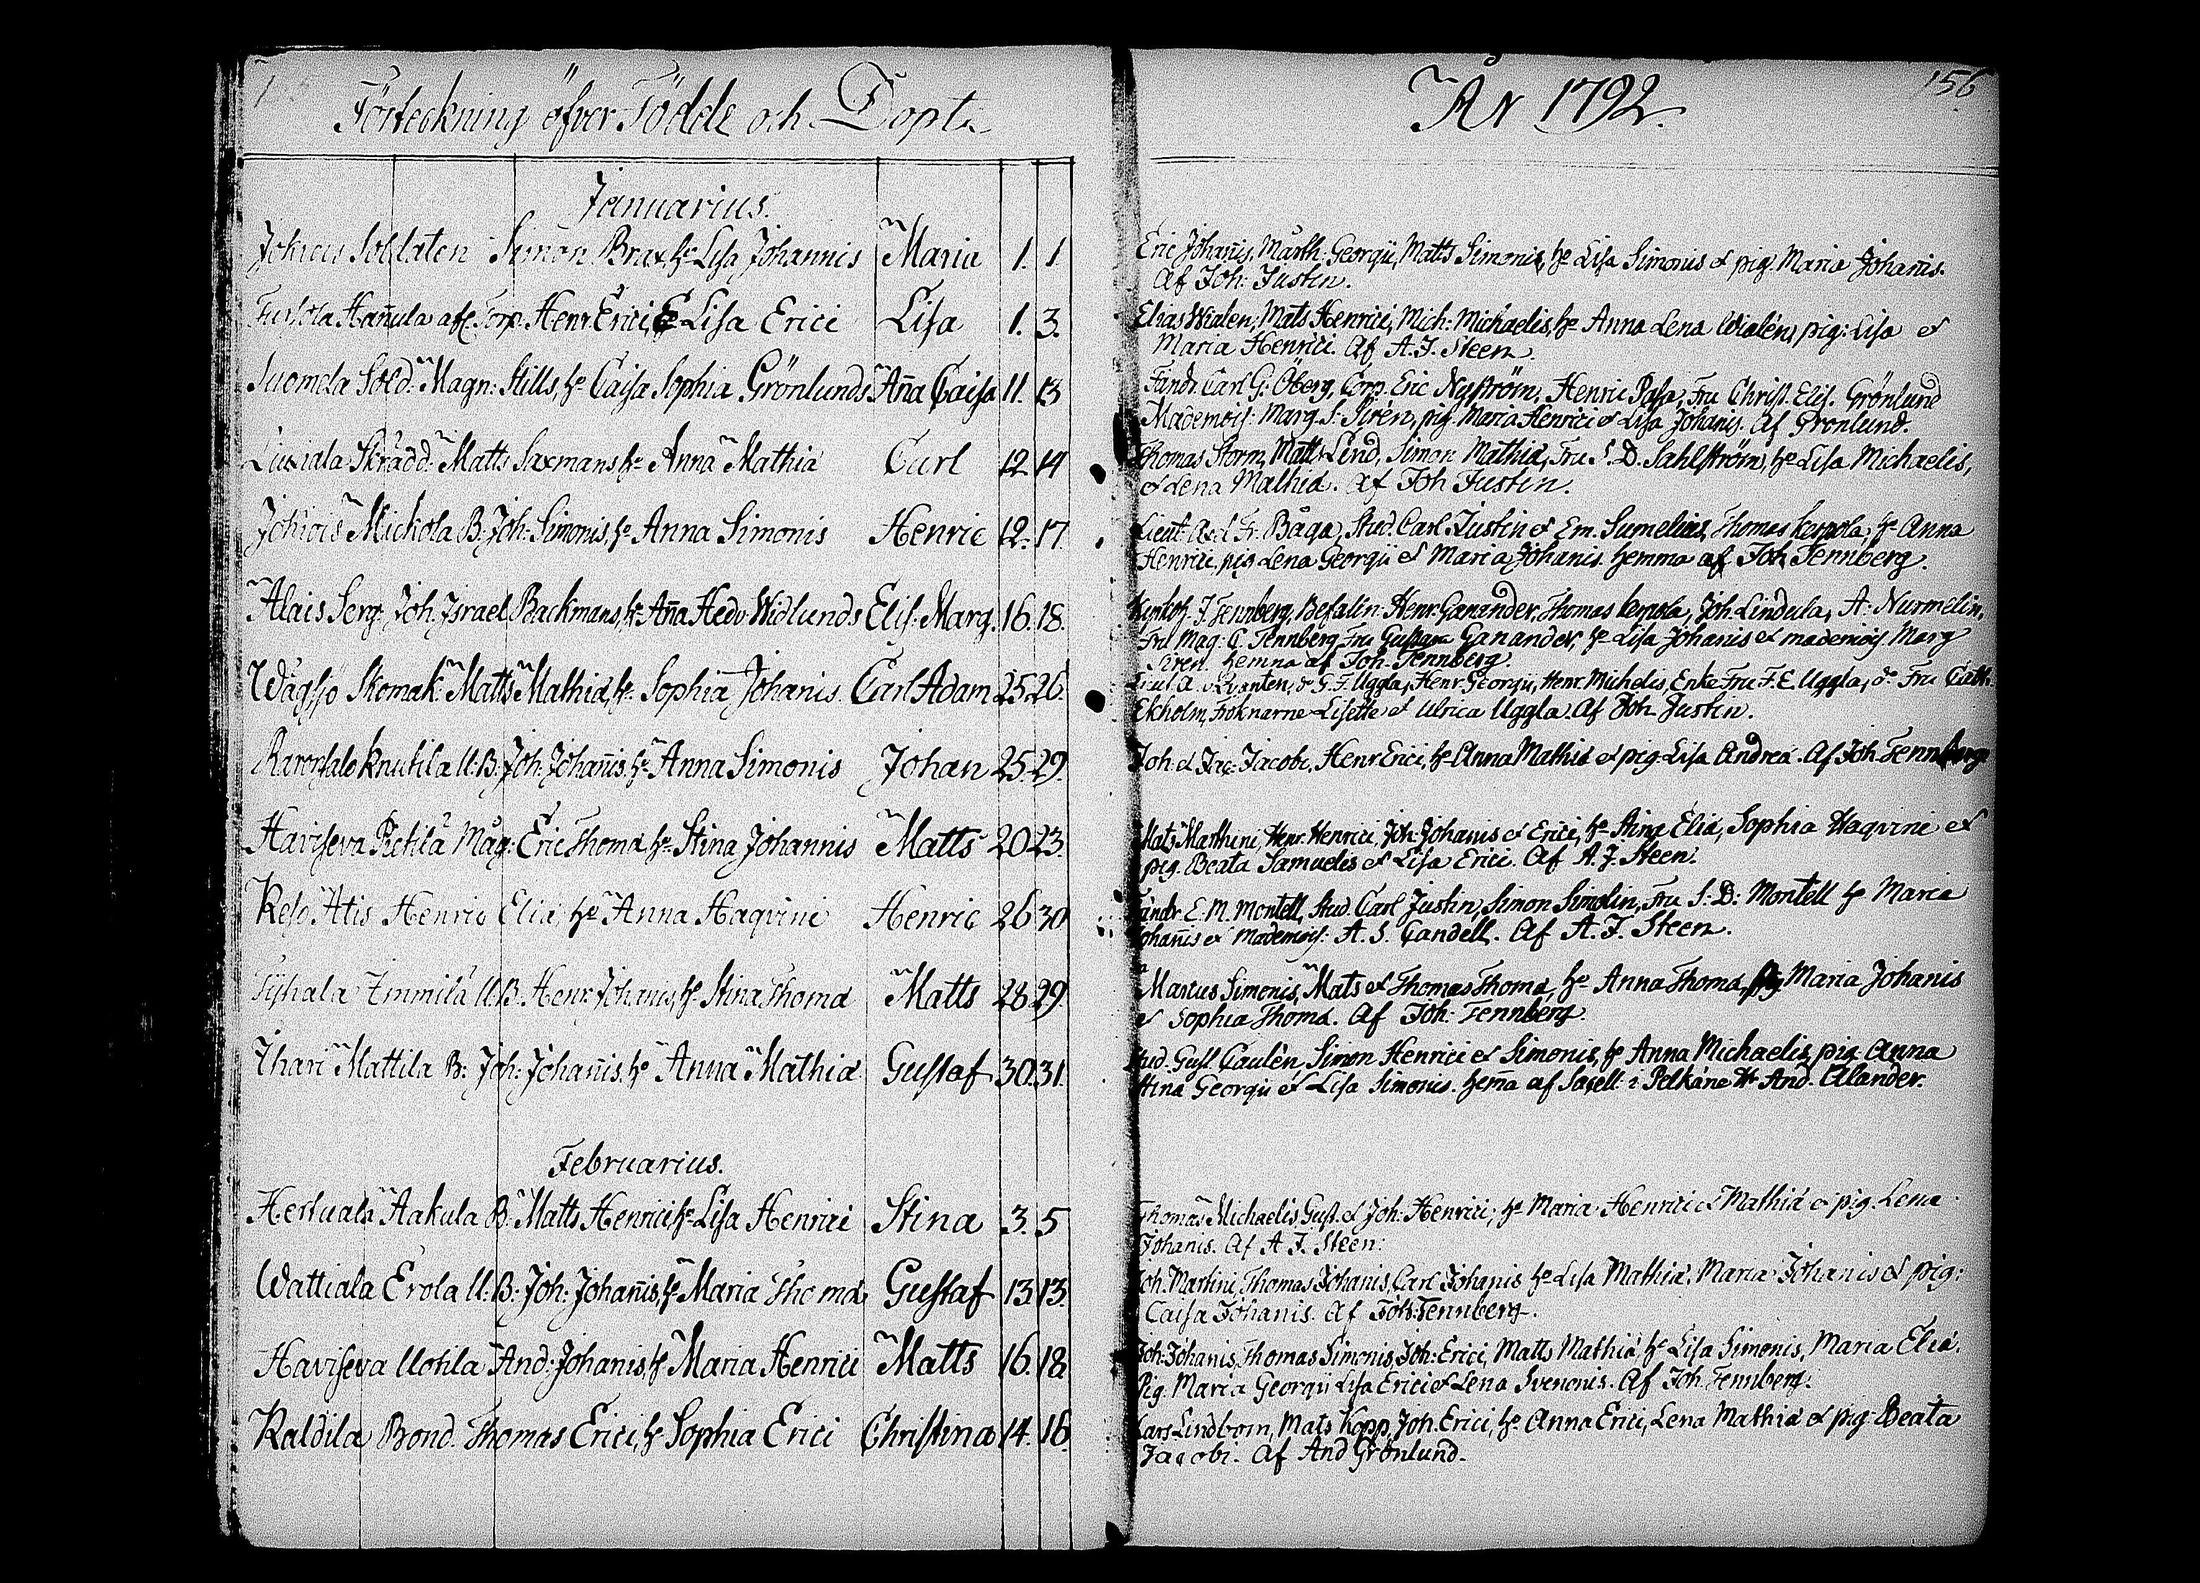 Förteckning öfver Födde och Döpte
Januarius.
Jokiois Soldaten Simon Brax, hu Lisa Johannis Maria 1. 1
Hañula afs. Torp. Henr. Erici, hu Lisa Erici Lisa 1. 3.
Suomela Sold. Magn: Stills, hu Caisa Sophia Grönlunds Aña Caisa 11. 13
Skrädd: Matts Saxmans hu Anna Mathiæ Carl 12 14
Jokiois Mickola B. Joh: Simonis, hu Anna Simonis Henric 12. 17.
Alais Serg: Joh. Israel Backmans, hu Aña Hedv. Widlunds Elis: Marg. 16. 18.
Wågsjö Skomak: Matts Mathiæ, hu Sophia Johanis. Carl Adam 25. 26.
Knutila U:B: Joh: Johañis, hu Anna Simonis Johan 25. 29.
Haviseva Pietilä Måg: Eric Thomæ hu Stina Johannis Matts 20. 23.
Keso Atis Henric Eliæ, hu Anna Haqvini Henric 26 30
Immilä U:B. Henr: Johanis, hu Stina Thomæ Matts 28. 29.
Ihari Mattila B: Joh: Johañis, hu Anna Mathiæ Gustaf 30. 31.
Februarius.
Hertuala Aakula B: Matts Henrici hu Lisa Henrici Stina 3. 5
Wattiala Erola U:B: Joh: Johañis, hu Maria Thomæ Gustaf 13. 13.
Haviseva Uotila And: Johanis, hu Maria Henrici Matts 16. 18
Kaldila Bond. Thomas Erici, hu Sophia Erici Christina 14. 16.
År 1792.
156
Eric Johañis, Märth: Georgii, Matts Simonis, hu Lisa Simonis et pig. Maria Johañis.
Af Joh: Justin.
Elias Wialen, Mats Henrici, Mich: Michaelis, hu Anna Lena Wialén, pig: Lisa et
Maria Henrici. Af A. J. Steen.
Fändr. Carl G: Öberg, Corp. Eric Nyström, Henric Pasa, Fru Christ. Elis. Grönlund
Mademois: Marg. S: Sirén, pig. Maria Henrici et Lisa Johanis. Af Grönlund.
Thomas Storm, Matts Lind, Simon Mathiæ, Fru S. D. Sahlström, hu Lisa Michaelis,
et Lena Mathiæ. Af Joh Justin.
Lieut. Axel Fr. Båga, Stud. Carl Justin et Em. Sumelius, Thomas Kerpola, hu Anna
Henrici, pig Lena Georgii et Maria Johanis. hemma af Joh. Tennberg.
J. Tennberg, Befalln: Henr. Ganander, Thomas Kerpola, Joh. Lindula, A: Nurmelin,
Fru Mag. C. Tennberg, Fru Gustava Ganander, hu Lisa Johanis et mademois Marg
Siren. hemma af Joh. Tennberg.
G. F. Uggla, Henr. Georgii, Henr. Michelis, Enke Fru F. E. Uggla, do Fru Cath.
Ekholm, Fröknarne Lisette et Ulrica Uggla. Af Joh. Justin.
Joh. et Jac. Jacobi, Henr Erici, hu Anna Mathiæ et pig. Lisa Andreæ. Af Joh. Tennberg
Mats Marthini, Henr. Henrici, Joh: Johanis et Erici, hu Stina Eliæ, Sophia Haqvini et
pig. Beata Samuelis et Lisa Erici. Af A. J. Steen.
Fändr. E. M. Montell, Stud. Carl Justin, Simon Simolin, Fru S: D: Montell hu Maria
Johañis et Mademois: A. S. Candell. Af A. J. Steen.
Marcus Simonis, Mats et Thomas Thomæ, hu Anna Thomæ, pig Maria Johanis
et Sophia Thomæ. Af Joh: Tennberg.
Stud. Gust. Caulén, Simon Henrici et Simonis, hu Anna Michaelis, pig. Anna
Stina Georgii et Lisa Simonis. hem̃a af Sacell: i Pelkäne Hr And. Alander.
Thomas Michaelis, Gust. et Joh: Henrici, hu Maria Henrici et Mathiæ et pig. Lena
Johanis. Af A. J. Steen:
Joh. Martini, Thomas Johanis, Carl Johanis hu Lisa Mathiæ, Maria Johanis et pig:
Caisa Johanis. Af Joh: Tennberg.
Joh: Johanis, Thomas Simonis, Joh: Erici, Matts Mathiæ hu Lisa Simonis, Maria Eliæ.
Pig. Maria Georgii Lisa Erici et Lena Svenonis. Af Joh. Tennberg.
Lars Lindbom, Mats Kopp, Joh. Erici, hu Anna Erici, Lena Mathiæ et pig: Beata
Jacobi. Af And Grönlund.